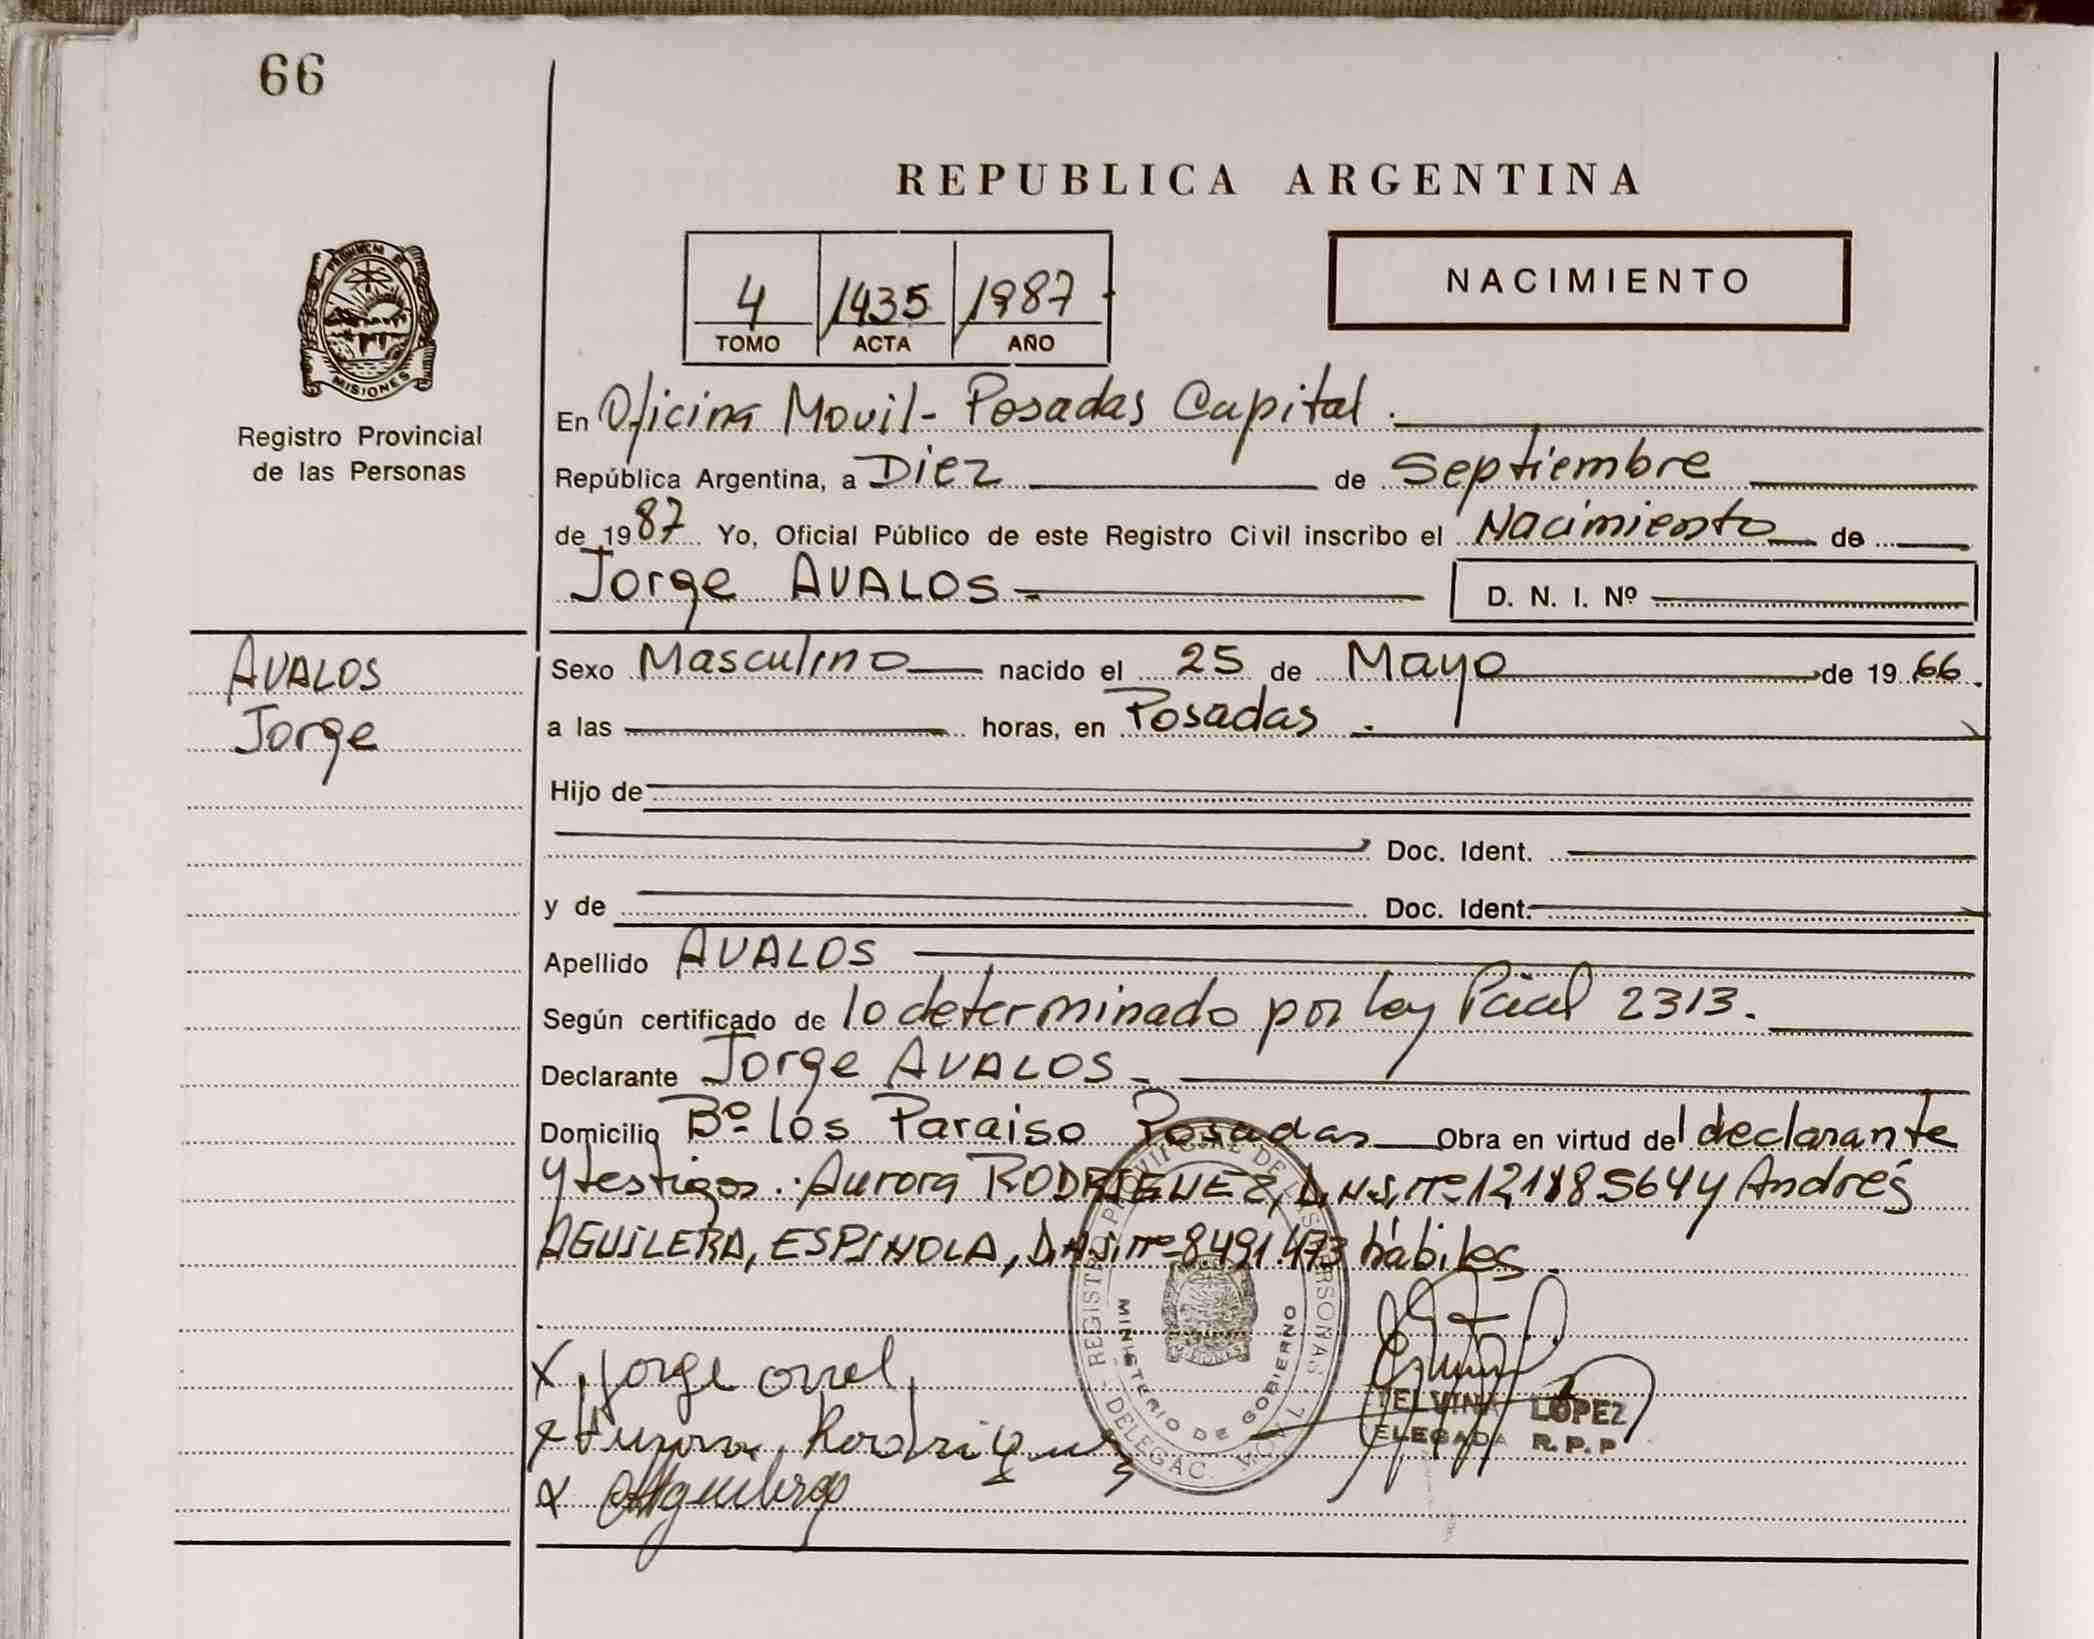 66
REPUBLICA ARGENTINA
4 1435 1987
TOMO ACTA AÑO
NACIMIENTO
PROVINCIA DE
MISIONES
Registro Provincial
de las Personas
En Oficina Movil - Posadas Capital.
República Argentina, a Diez de Septiembre
de 1987 Yo, Oficial Público de este Registro Civil inscribo el Nacimiento de
Jorge AVALOS
D. N. I. Nº
AVALOS
Jorge
Sexo Masculino nacido el 25 de Mayo de 1966.
a las horas, en Posadas.
Hijo de
Doc. Ident.
y de Doc. Ident.
Apellido AVALOS
Según certificado de lo determinado por Ley Pcial 2313.
Declarante Jorge AVALOS
Domicilio Bº los Paraiso Posadas Obra en virtud del declarante
y testigos: Aurora RODRIGUEZ, D.N.I. nº 12.118.564 y Andrés
AGUILERA, ESPINOLA, D.N.I. nº 8.491.473 hábiles.
x Jorge
x Aurora Rodriguez
x Aguilera
REGISTRO PROVINCIAL DE LAS PERSONAS
MINISTERIO DE GOBIERNO
MISIONES
DELEGAC. MOVIL
TELVINA LOPEZ
DELEGADA R.P.P